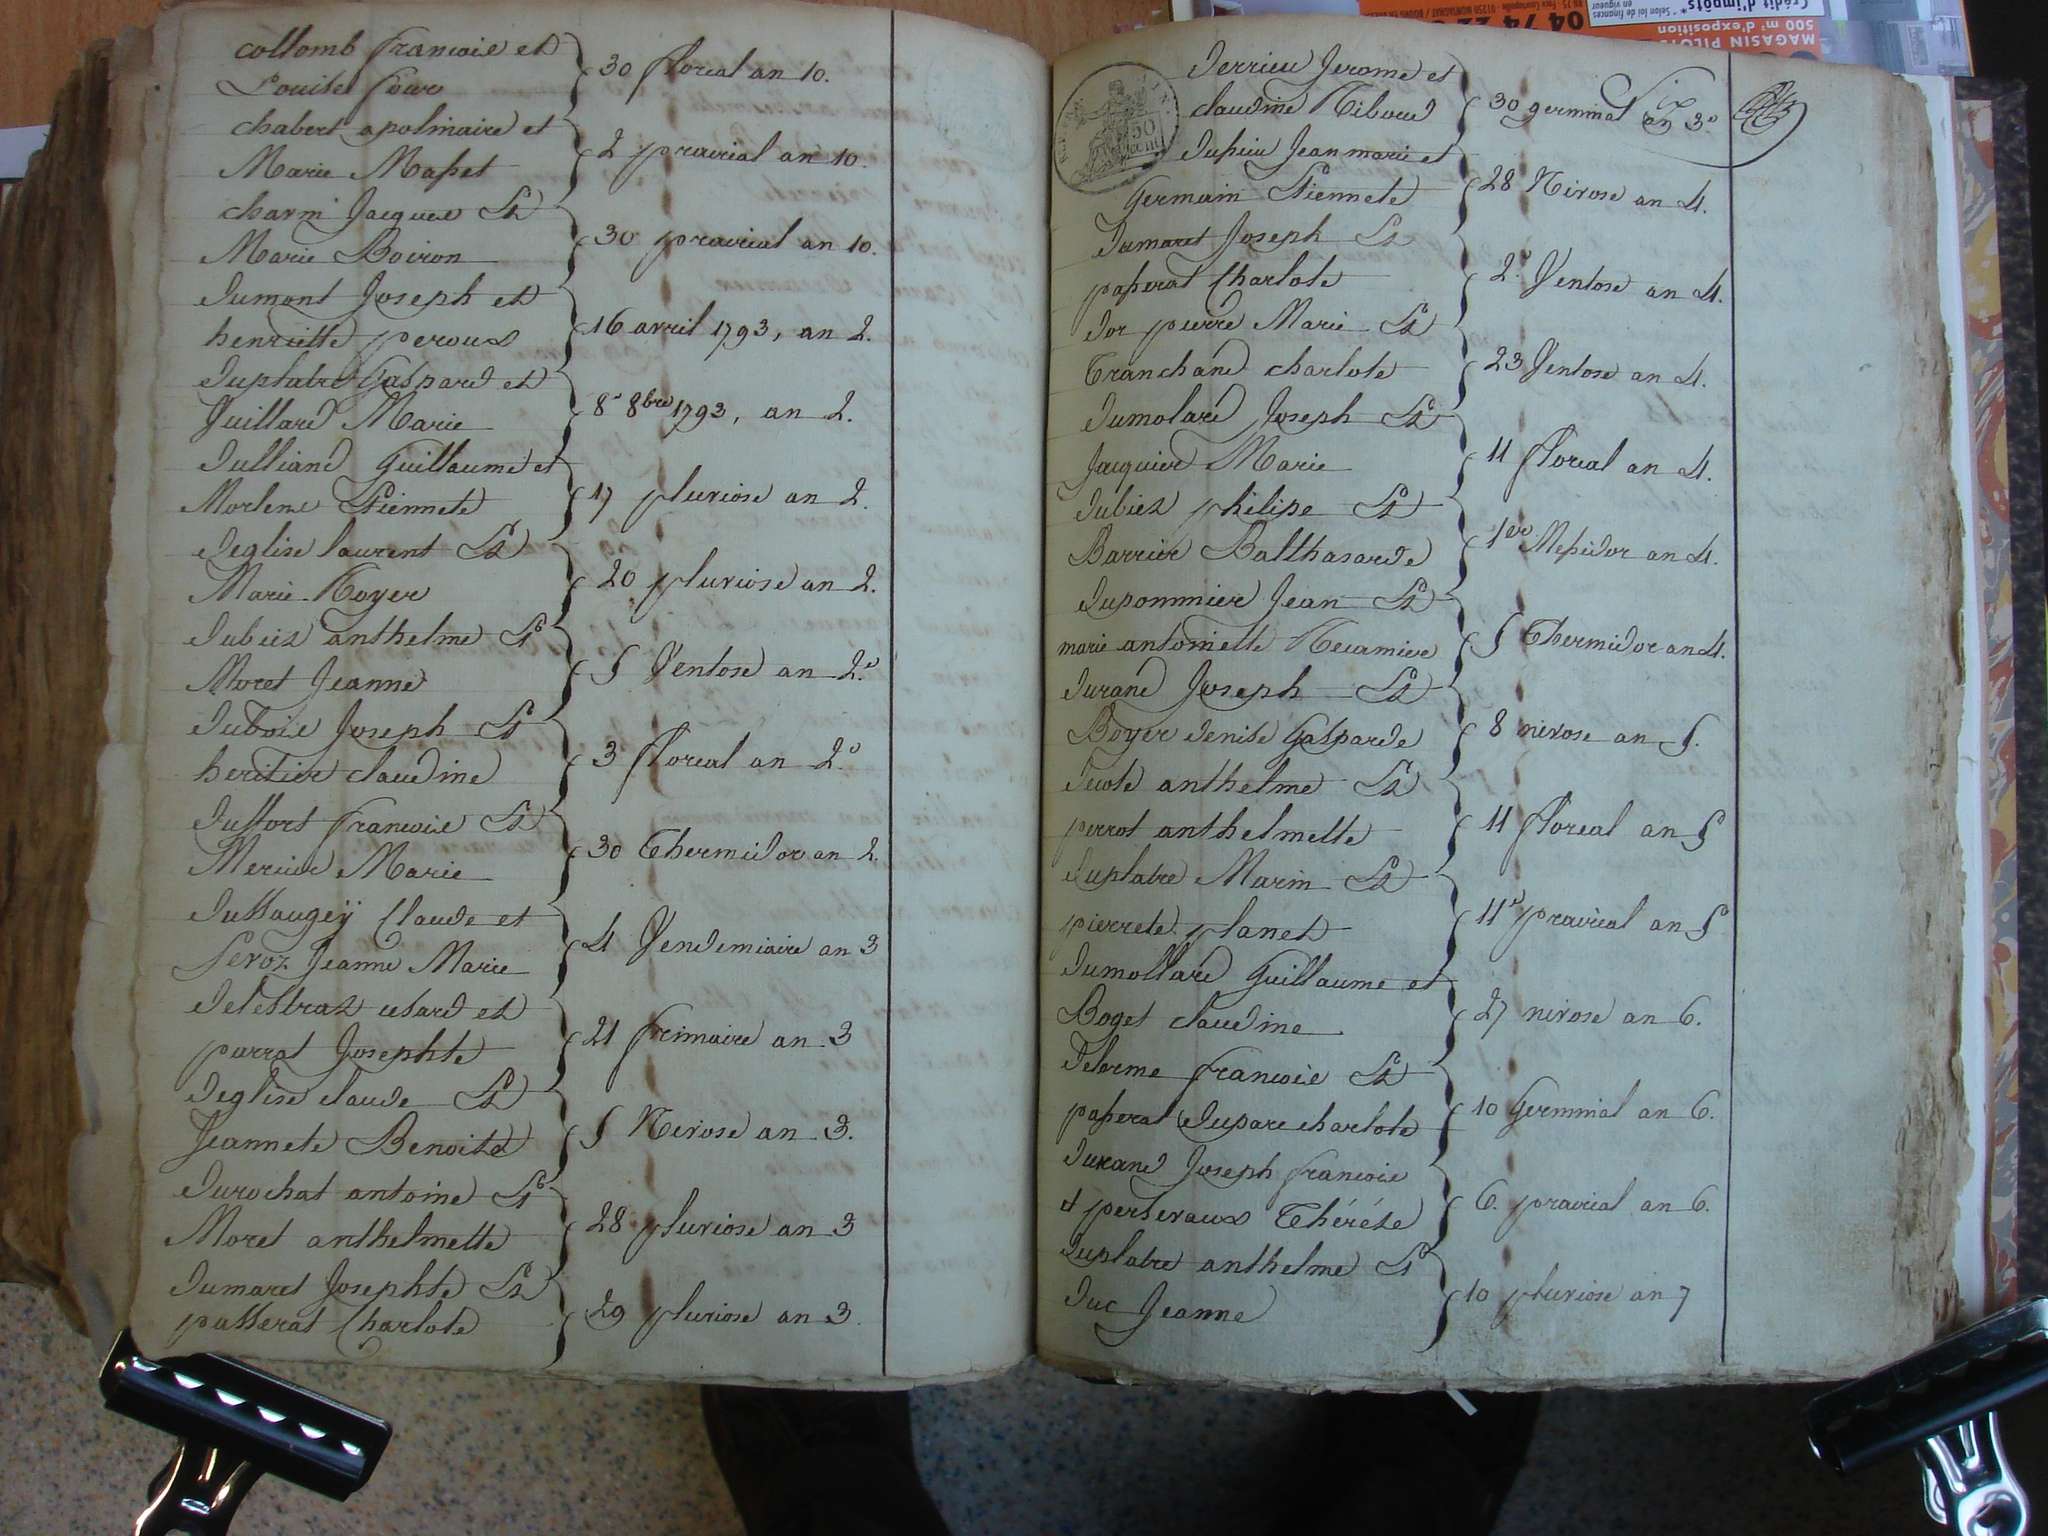 collomb francois et
Louise four
30 floreal an 10.
chabert apolinaire et
Marie Masset
2 prairial an 10.
charm Jacques et
Marie Boiron
30 prairial an 10.
Dumont Joseph et
henriette peroux
16 avril 1793, an 2.
Duplatre Gaspard et
Vuillard Marie
8 8bre 1793, an 2.
Dulliand Guillaume et
Morlene Etiennete
17 pluviose an 2.
Deglise laurent et
Marie Royer
20 pluviose an 2.
Dubiez anthelme et
Moret Jeanne
5 Ventose an 2.e
Dubois Joseph et
heritier claudine
3 floreal an 2.e
Duffort francois et
Mercier Marie
30 Thermidor an 2.
Dussaugey Claude et
Feroz Jeanne Marie
4 Vendemiaire an 3
Delestraz cesard et
parrat Josephte
21 frimaire an 3
Deglise claude et
Jeannete Benoite
5 Nivose an 3.
Durochat antoine et
Moret anthelmette
28 pluviose an 3
Dumaret Josephte et
passerat Charlote
29 pluviose an 3
Derrieu Jerome et
claudine Riboud
30 germinal an 3.e
Dupuu Jean marie et
Germain Etiennete
28 Nivose an 4.
Dumaret Joseph et
passerat Charlote
2.e Ventose an 4.
Dor pierre Marie et
Tranchand charlote
23 Ventose an 4.
Dumolard Joseph et
Jacquier Marie
11 floreal an 4.
Dubiez philipe et
Barrier Balthasarde
1er Messidor an 4.
Duponmier Jean et
marie antoinette Recamier
5 Thermidor an 4.
Durand Joseph et
Boyer denise Gasparde
8 nivose an 5.
Decote anthelme et
perrot anthelmette
11 floreal an 5
Duplatre Marin et
pierrete planet
11e prairial an 5
Dumollard Guillaume et
Boget claudine
27 nivose an 6.
Delorme francois et
passerat Duparc charlote
10 Germinal an 6.
Durand Joseph francois
et perseraux Thérése
6. prairial an 6.
Duplatre anthelme et
Duc Jeanne
10 pluviose an 7
50
04 74 22
500 m² d'exposition
MAGASIN PILOTE
Crédit d'impôts*
* Selon loi de finances
en vigueur